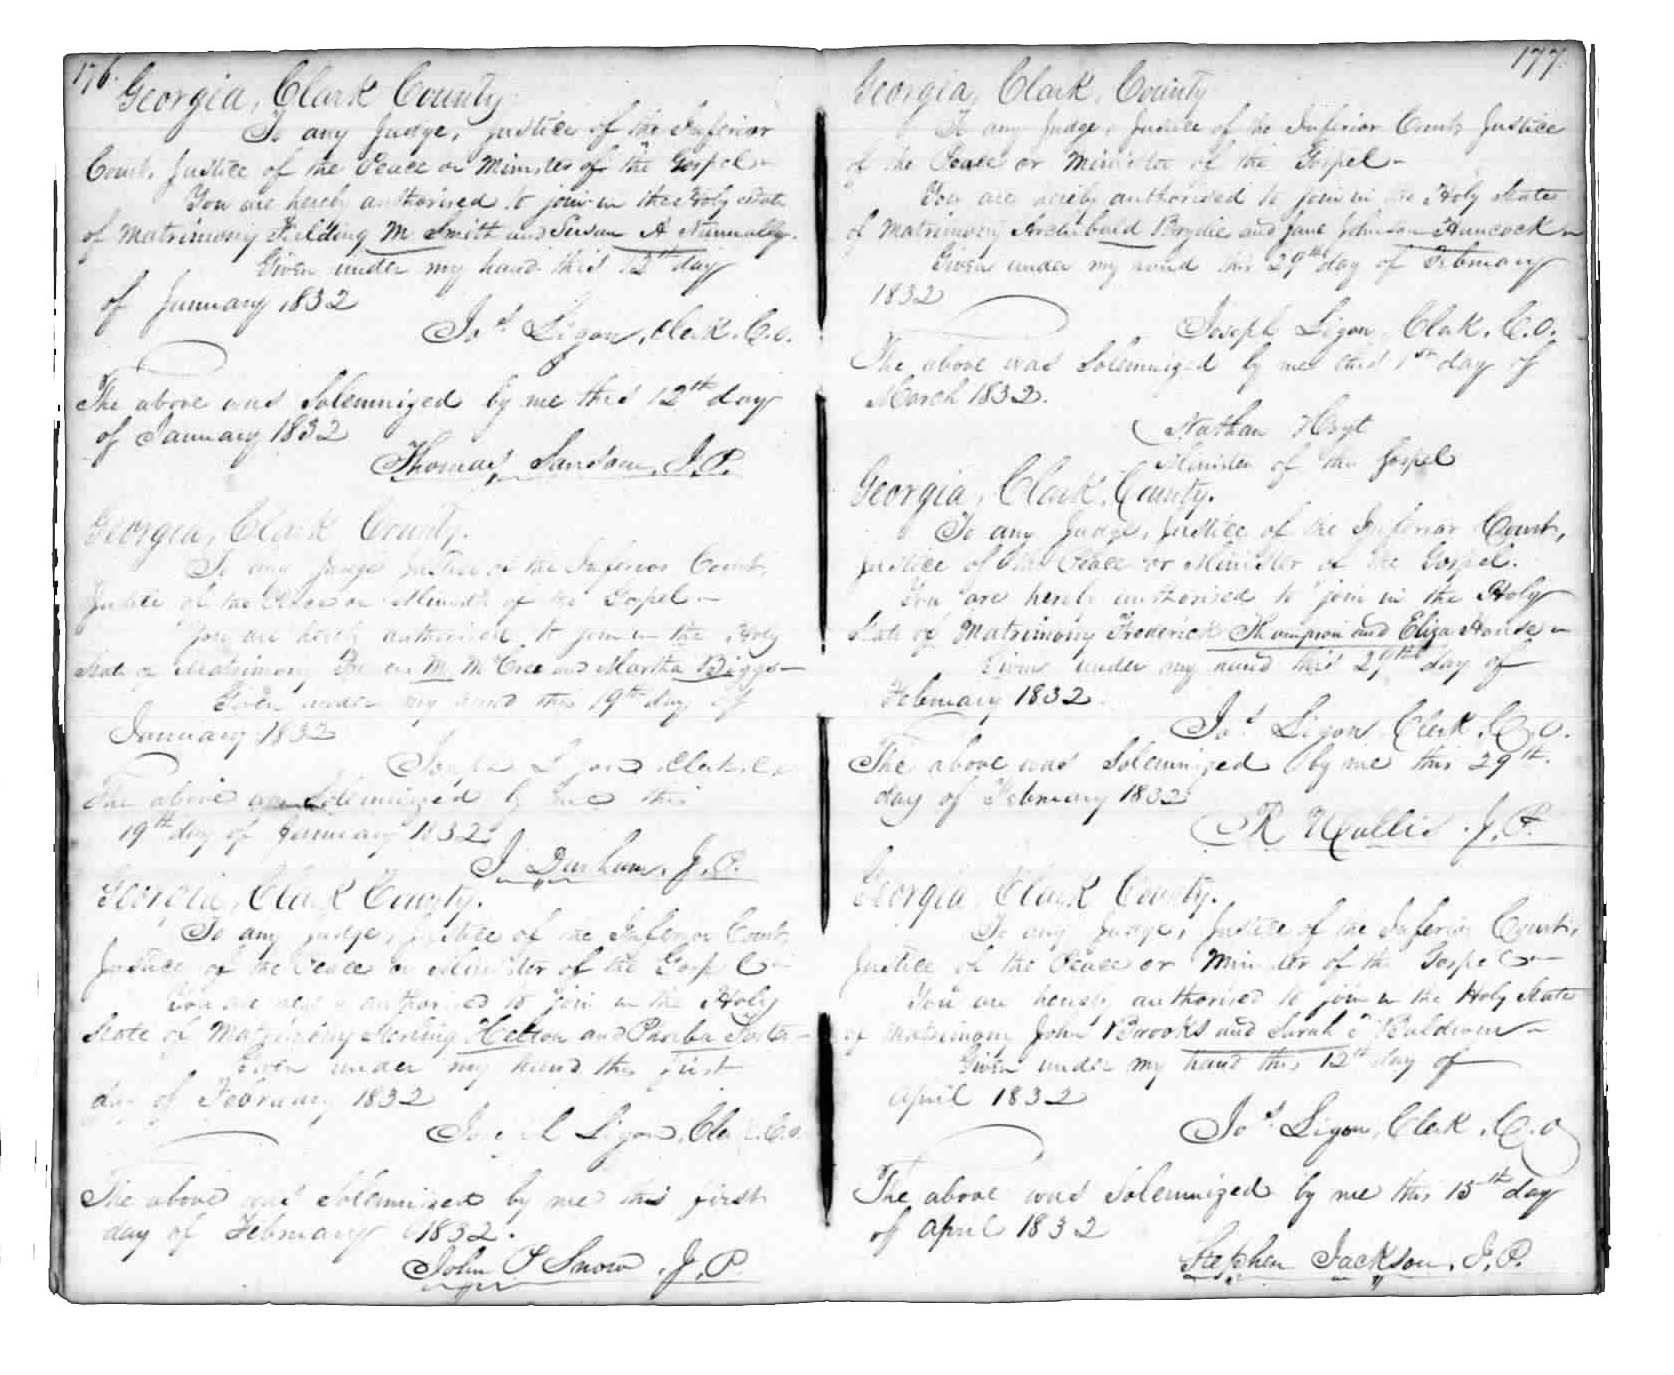 176.
Georgia, Clark County
To any Judge, justice of the Inferior
Court, Justice of the Peace or Minister of the Gospel -
You are hereby authorised to join in the Holy state
of Matrimony Fielding M Smith and Susan A Nunnally.
Given under my hand this 12th day
of January 1832
Jos. Ligon, Clerk. C.O.
The above was Solemnized by me this 12th day
of January 1832
Thomas Sansom, J.P.
Georgia, Clark County.
To any Judge Justice of the Inferior Court,
Justice of the Peace or Minister of the Gospel -
You are hereby authorised to join in the Holy
State of Matrimony M. McCree and Martha Biggs -
Given under my hand this 19th day of
January 1832
Joseph Ligon Clerk. C.O.
The above was Solemnized by me this
19th day of January 1832
J Durham, J.P.
Georgia, Clark County.
To any Judge, Justice of the Inferior Court,
Justice of the Peace or Minister of the Gospel -
You are hereby authorised to join in the Holy
State of Matrimony Helton and Phoeba -
Given under my hand this first
day of February 1832
Joseph Ligon, Clerk. C.O.
The above was Solemnized by me this first
day of February 1832.
John P Snow, J.P
177
Georgia, Clark, County
To any Judge, Justice of the Inferior Court Justice
of the Peace or Minister of the Gospel -
You are hereby authorised to join in the Holy State
of Matrimony Archibald Brydie and Jane Johnson Hancock -
Given under my hand this 29th day of February
1832
Joseph Ligon, Clerk. C.O.
The above was Solemnized by me this 1st day of
March 1832.
Nathan Hoyt
Minister of the Gospel
Georgia, Clark, County.
To any Judge, Justice of the Inferior Court,
Justice of the Peace or Minister of the Gospel.
You are hereby authorised to join in the Holy
State of Matrimony Frederick Thompson and Eliza House -
Given under my hand this 29th day of
February 1832
Jos. Ligon, Clerk, C.O.
The above was Solemnized by me this 29th.
day of February 1832
R J.P.
Georgia, Clark County.
To any Judge, Justice of the Inferior Court,
Justice of the Peace or Minister of the Gospel -
You are hereby authorised to join in the Holy State
of Matrimony John Brooks and Sarah Baldwin -
Given under my hand this 12th day of
April 1832
Jos. Ligon, Clerk, C.O
The above was Solemnized by me this 15th day
of April 1832
Stephen Jackson, J.P.